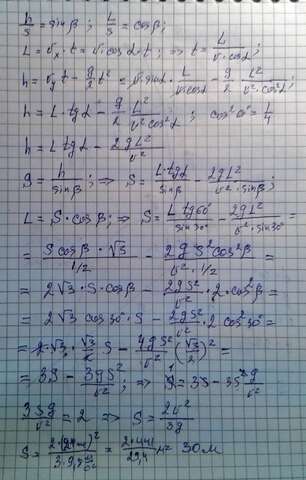 h/S = sinβ; L/S = cosβ;
L = υₓ·t = υ·cosα·t; ⇒ t = L/(υ·cosα);
h = υᵧt − g/2 t² = υ sinα · L/(υ cosα) − g/2 · L²/(υ² cos²α);
h = L tgα − g/2 L²/(υ² cos²α); cos²α = 1/4
h = L tgα − 2gL²/υ²
S = h/sinβ; ⇒ S = L tgα/sinβ − 2gL²/(υ² sinβ);
L = S·cosβ; ⇒ S = L tg60°/sin30° − 2gL²/(υ² sin30°) =
= S cosβ·√3/(1/2) − 2gS² cos²β/(υ²·1/2) =
= 2√3·S·cosβ − 2gS²/υ² · 2·cos²β =
= 2√3 cos30°·S − 2gS²/υ² · 2cos²30° =
= 2·√3·√3/2 S − 4gS²/υ² (√3/2)² =
= 3S − 3gS²/υ²; ⇒ 1 = 3 − 3Sg/υ²
3Sg/υ² = 2 ⇒ S = 2υ²/3g
S = 2·(21 м/с)²/(3·9,8 м/с²) = 2·441/29,4 м = 30м